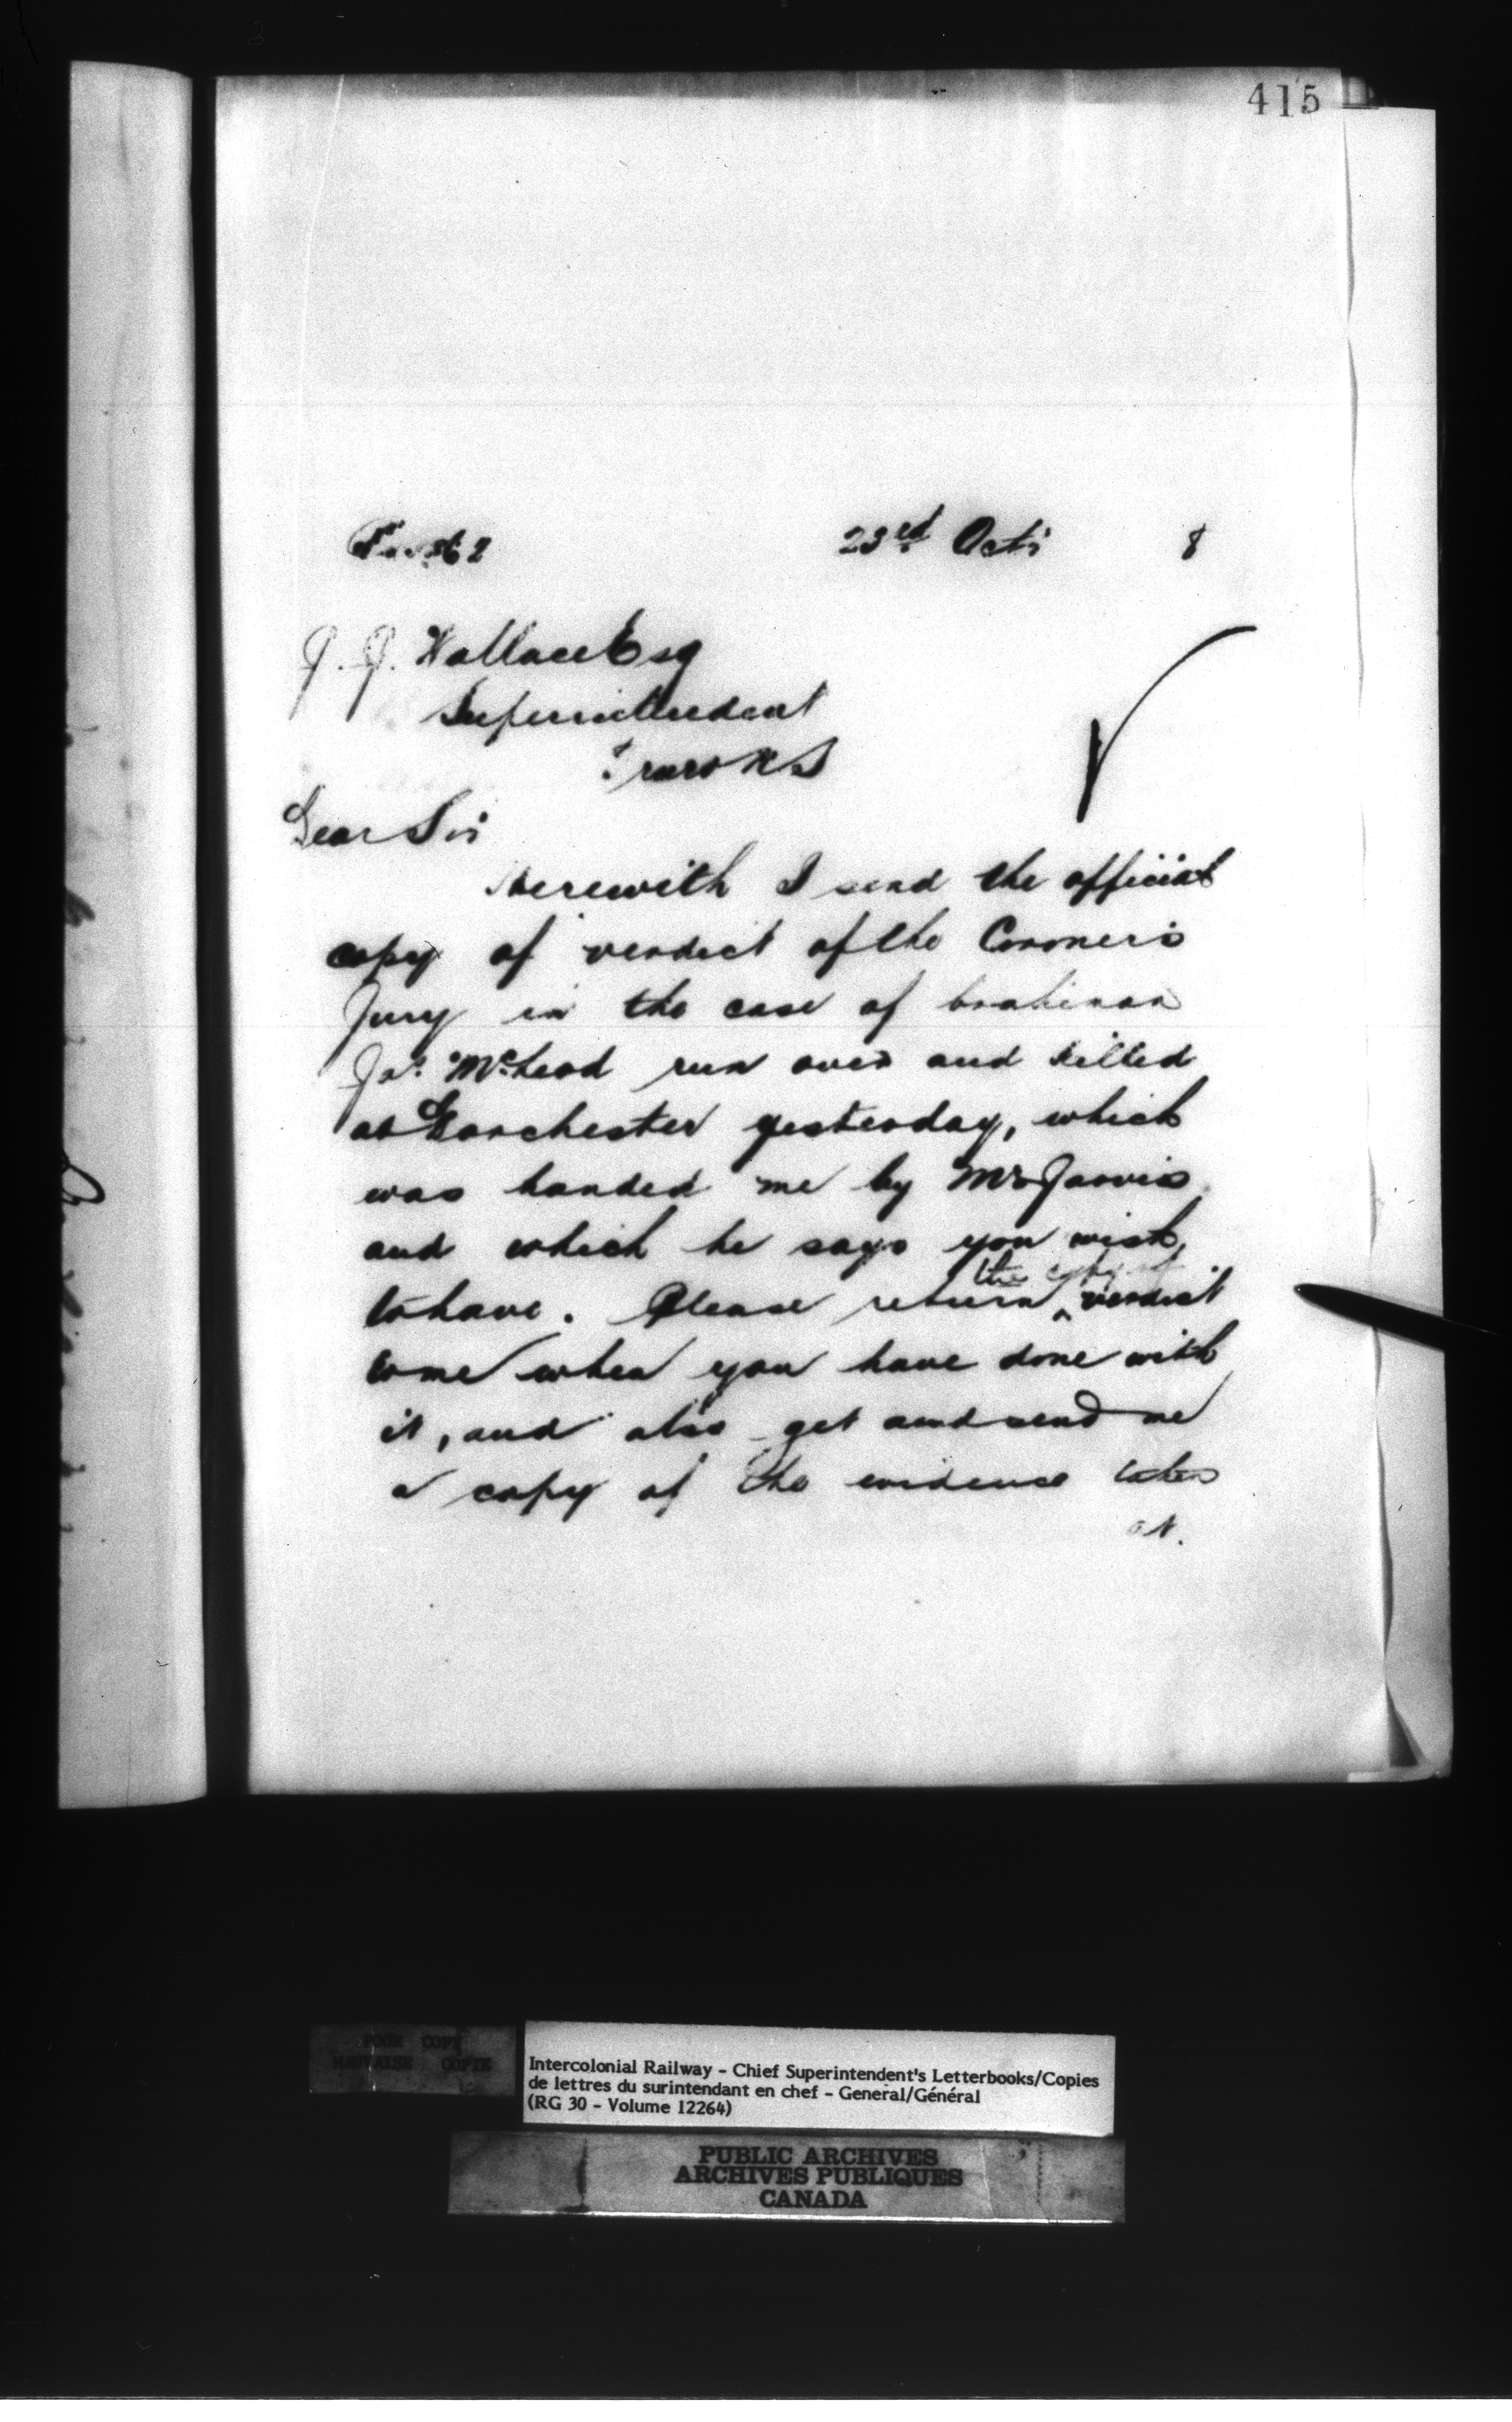 415
23rd Oct 8
J. J. Wallace Esq
Superintendent
Truro NS
Dear Sir
Herewith I send the official
copy of verdict of the Coroner's
Jury in the case of brakeman
Jas. McLeod run over and killed
at Dorchester yesterday, which
was handed me by Mr Jarvis
and which he says you wish
to have. Please return the copy of verdict
to me when you have done with
it, and also get and send me
a copy of the evidence taken
at.
POOR COPY
MAUVAISE COPIE
Intercolonial Railway - Chief Superintendent's Letterbooks/Copies
de lettres du surintendant en chef - General/Général
(RG 30 - Volume 12264)
PUBLIC ARCHIVES
ARCHIVES PUBLIQUES
CANADA